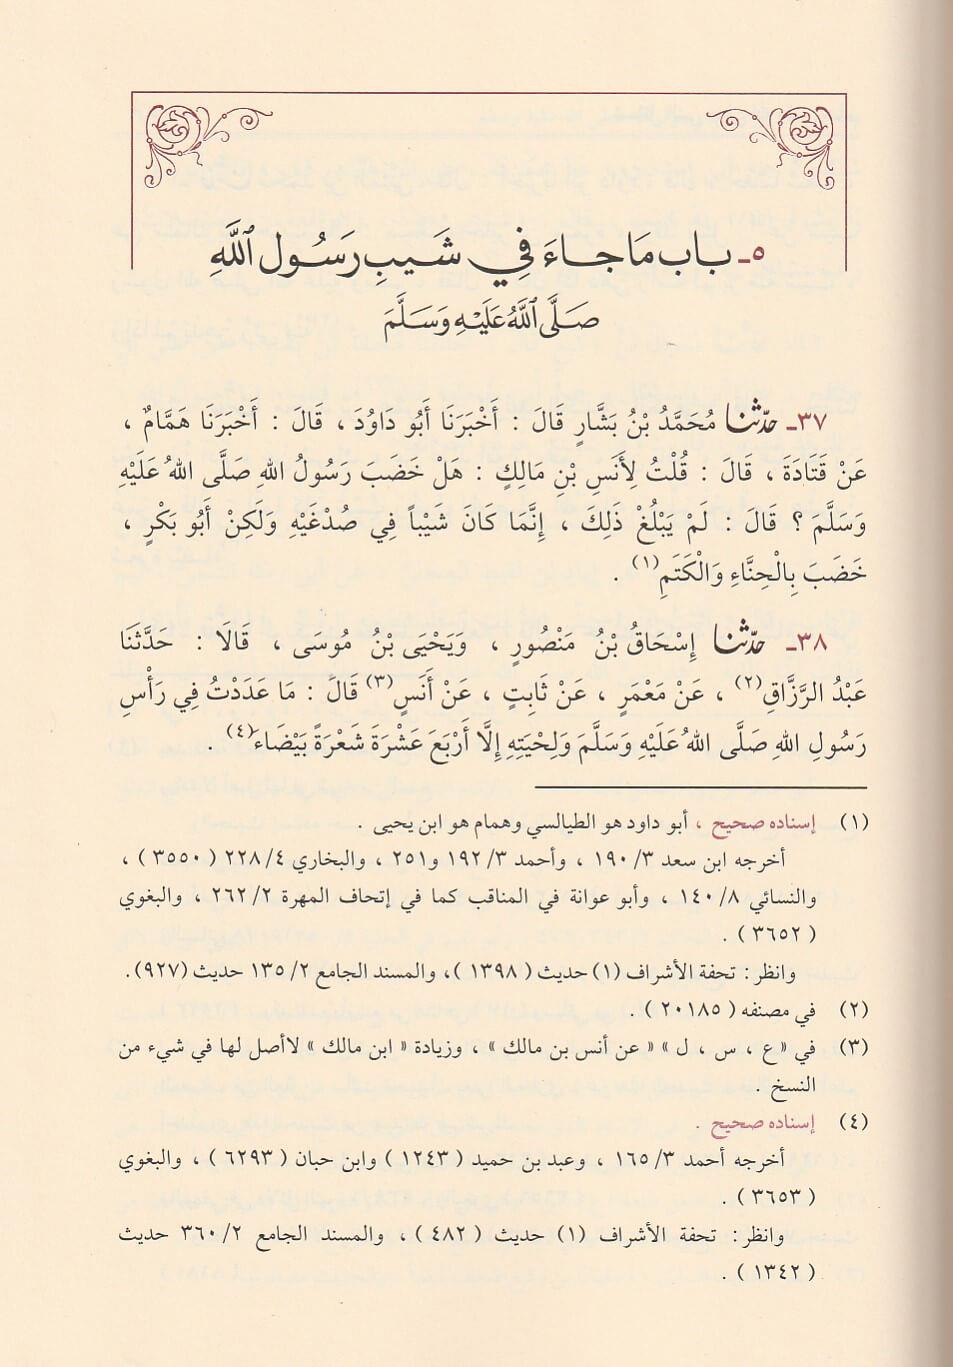 ٥ـ باب ما جاء في شَيبِ رَسُول ٱللَّهِ
صَلَّى ٱللَّهُ عَلَيْهِ وَسَلَّمَ
٣٧ـ حدّثنا مُحَمَّدُ بْنُ بَشَّارٍ قَالَ : أَخْبَرَنَا أَبُو دَاوُدَ ، قَالَ : أَخْبَرَنَا هَمَّامٌ ،
عَنْ قَتَادَةَ ، قَالَ : قُلْتُ لِأَنَسِ بْنِ مَالِكٍ : هَلْ خَضَبَ رَسُولُ اللهِ صَلَّى اللهُ عَلَيْهِ
وَسَلَّمَ ؟ قَالَ : لَمْ يَبْلُغْ ذَلِكَ ، إِنَّمَا كَانَ شَيْباً فِي صُدْغَيْهِ وَلَكِنْ أَبُو بَكْرٍ ،
خَضَبَ بِالْحِنَّاءِ وَالْكَتَمِ(١) .
٣٨ـ حدّثنا إِسْحَاقُ بْنُ مَنْصُورٍ ، وَيَحْيَى بْنُ مُوسَى ، قَالَا : حَدَّثَنَا
عَبْدُ الرَّزَّاقِ(٢) ، عَنْ مَعْمَرٍ ، عَنْ ثَابِتٍ ، عَنْ أَنَسٍ(٣) قَالَ : مَا عَدَدْتُ فِي رَأْسِ
رَسُولِ اللهِ صَلَّى اللهُ عَلَيْهِ وَسَلَّمَ وَلِحْيَتِهِ إِلَّا أَرْبَعَ عَشْرَةَ شَعْرَةً بَيْضَاءَ(٤) .
(١) إسناده صحيح ، أبو داود هو الطيالسي وهمام هو ابن يحيى .
أخرجه ابن سعد ٣/ ١٩٠ ، وأحمد ٣/ ١٩٢ و٢٥١ ، والبخاري ٤/ ٢٢٨ (٣٥٥٠) ،
والنسائي ٨/ ١٤٠ ، وأبو عوانة في المناقب كما في إتحاف المهرة ٢/ ٢٦٢ ، والبغوي
(٣٦٥٢) .
وانظر: تحفة الأشراف (١) حديث (١٣٩٨)، والمسند الجامع ٢/ ١٣٥ حديث (٩٢٧).
(٢) في مصنفه (٢٠١٨٥) .
(٣) في «ع ، س ، ل» «عن أنس بن مالك» ، وزيادة «ابن مالك» لاأصل لها في شيء من
النسخ .
(٤) إسناده صحيح .
أخرجه أحمد ٣/ ١٦٥ ، وعبد بن حميد (١٢٤٣) وابن حبان (٦٢٩٣) ، والبغوي
(٣٦٥٣) .
وانظر: تحفة الأشراف (١) حديث (٤٨٢)، والمسند الجامع ٢/ ٣٦٠ حديث
(١٣٤٢) .